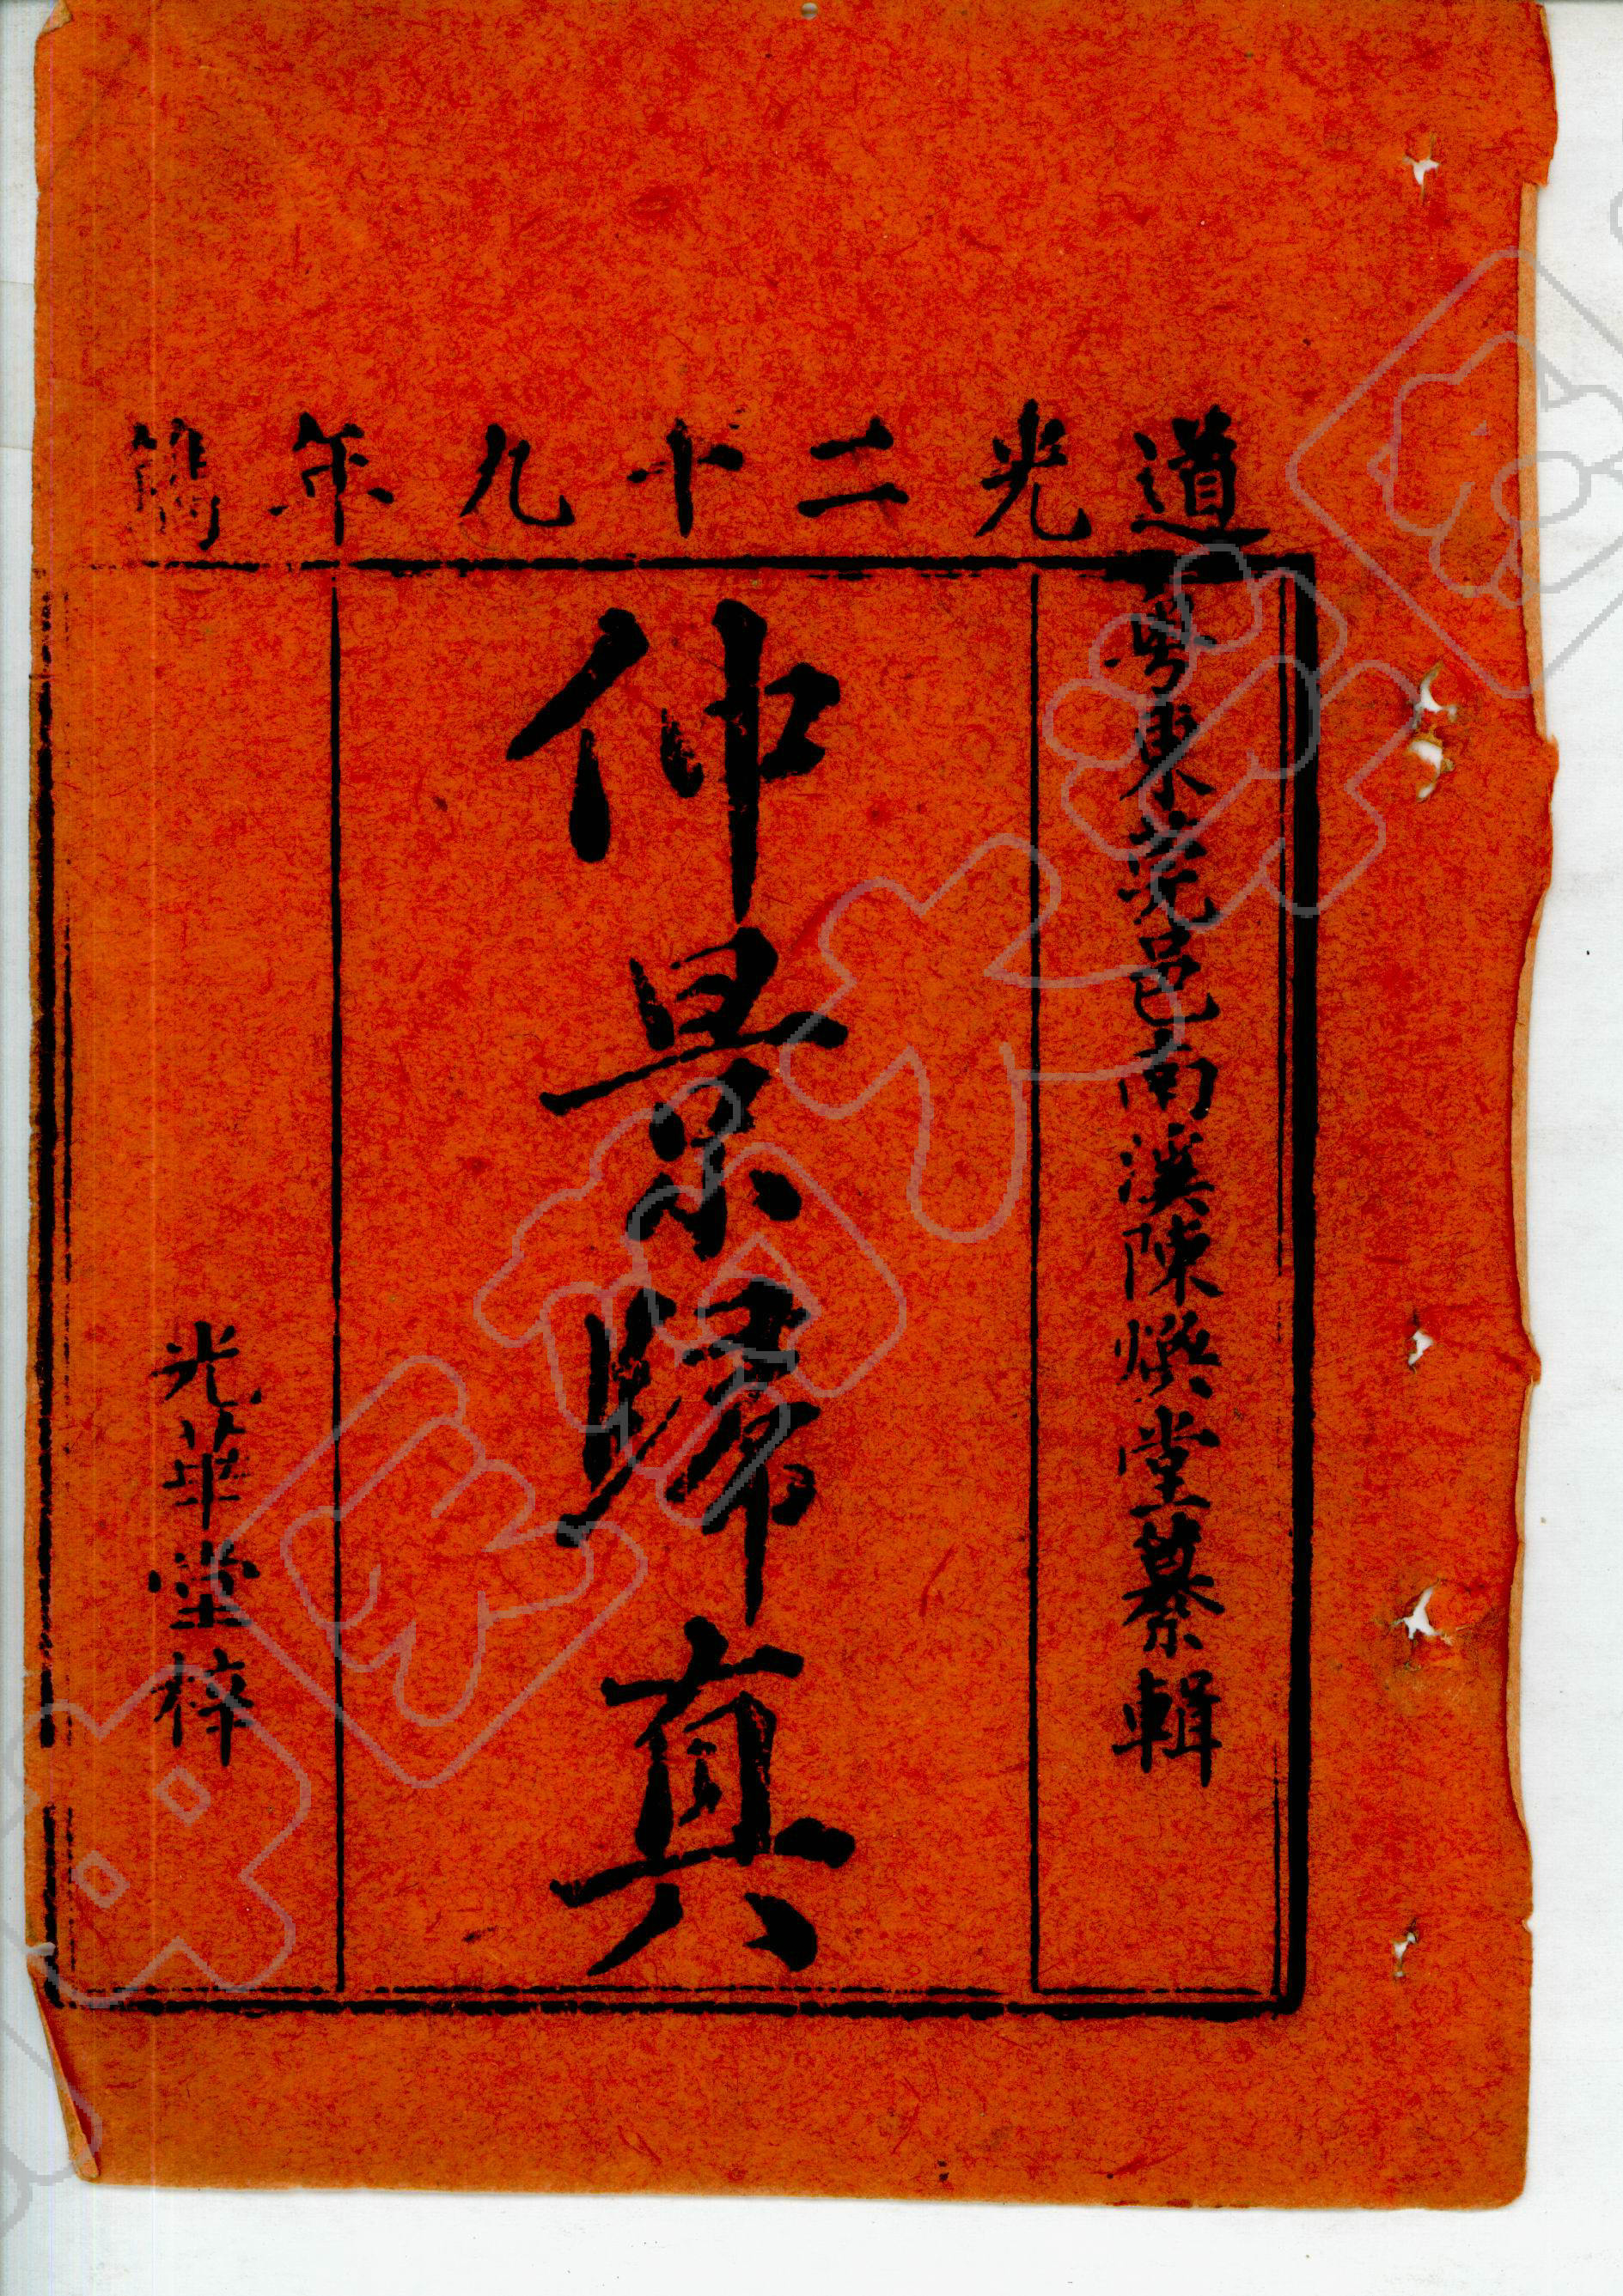 道光二十九年鐫
粵東莞邑南溪陳煥堂纂輯
仲景歸真
光華堂梓